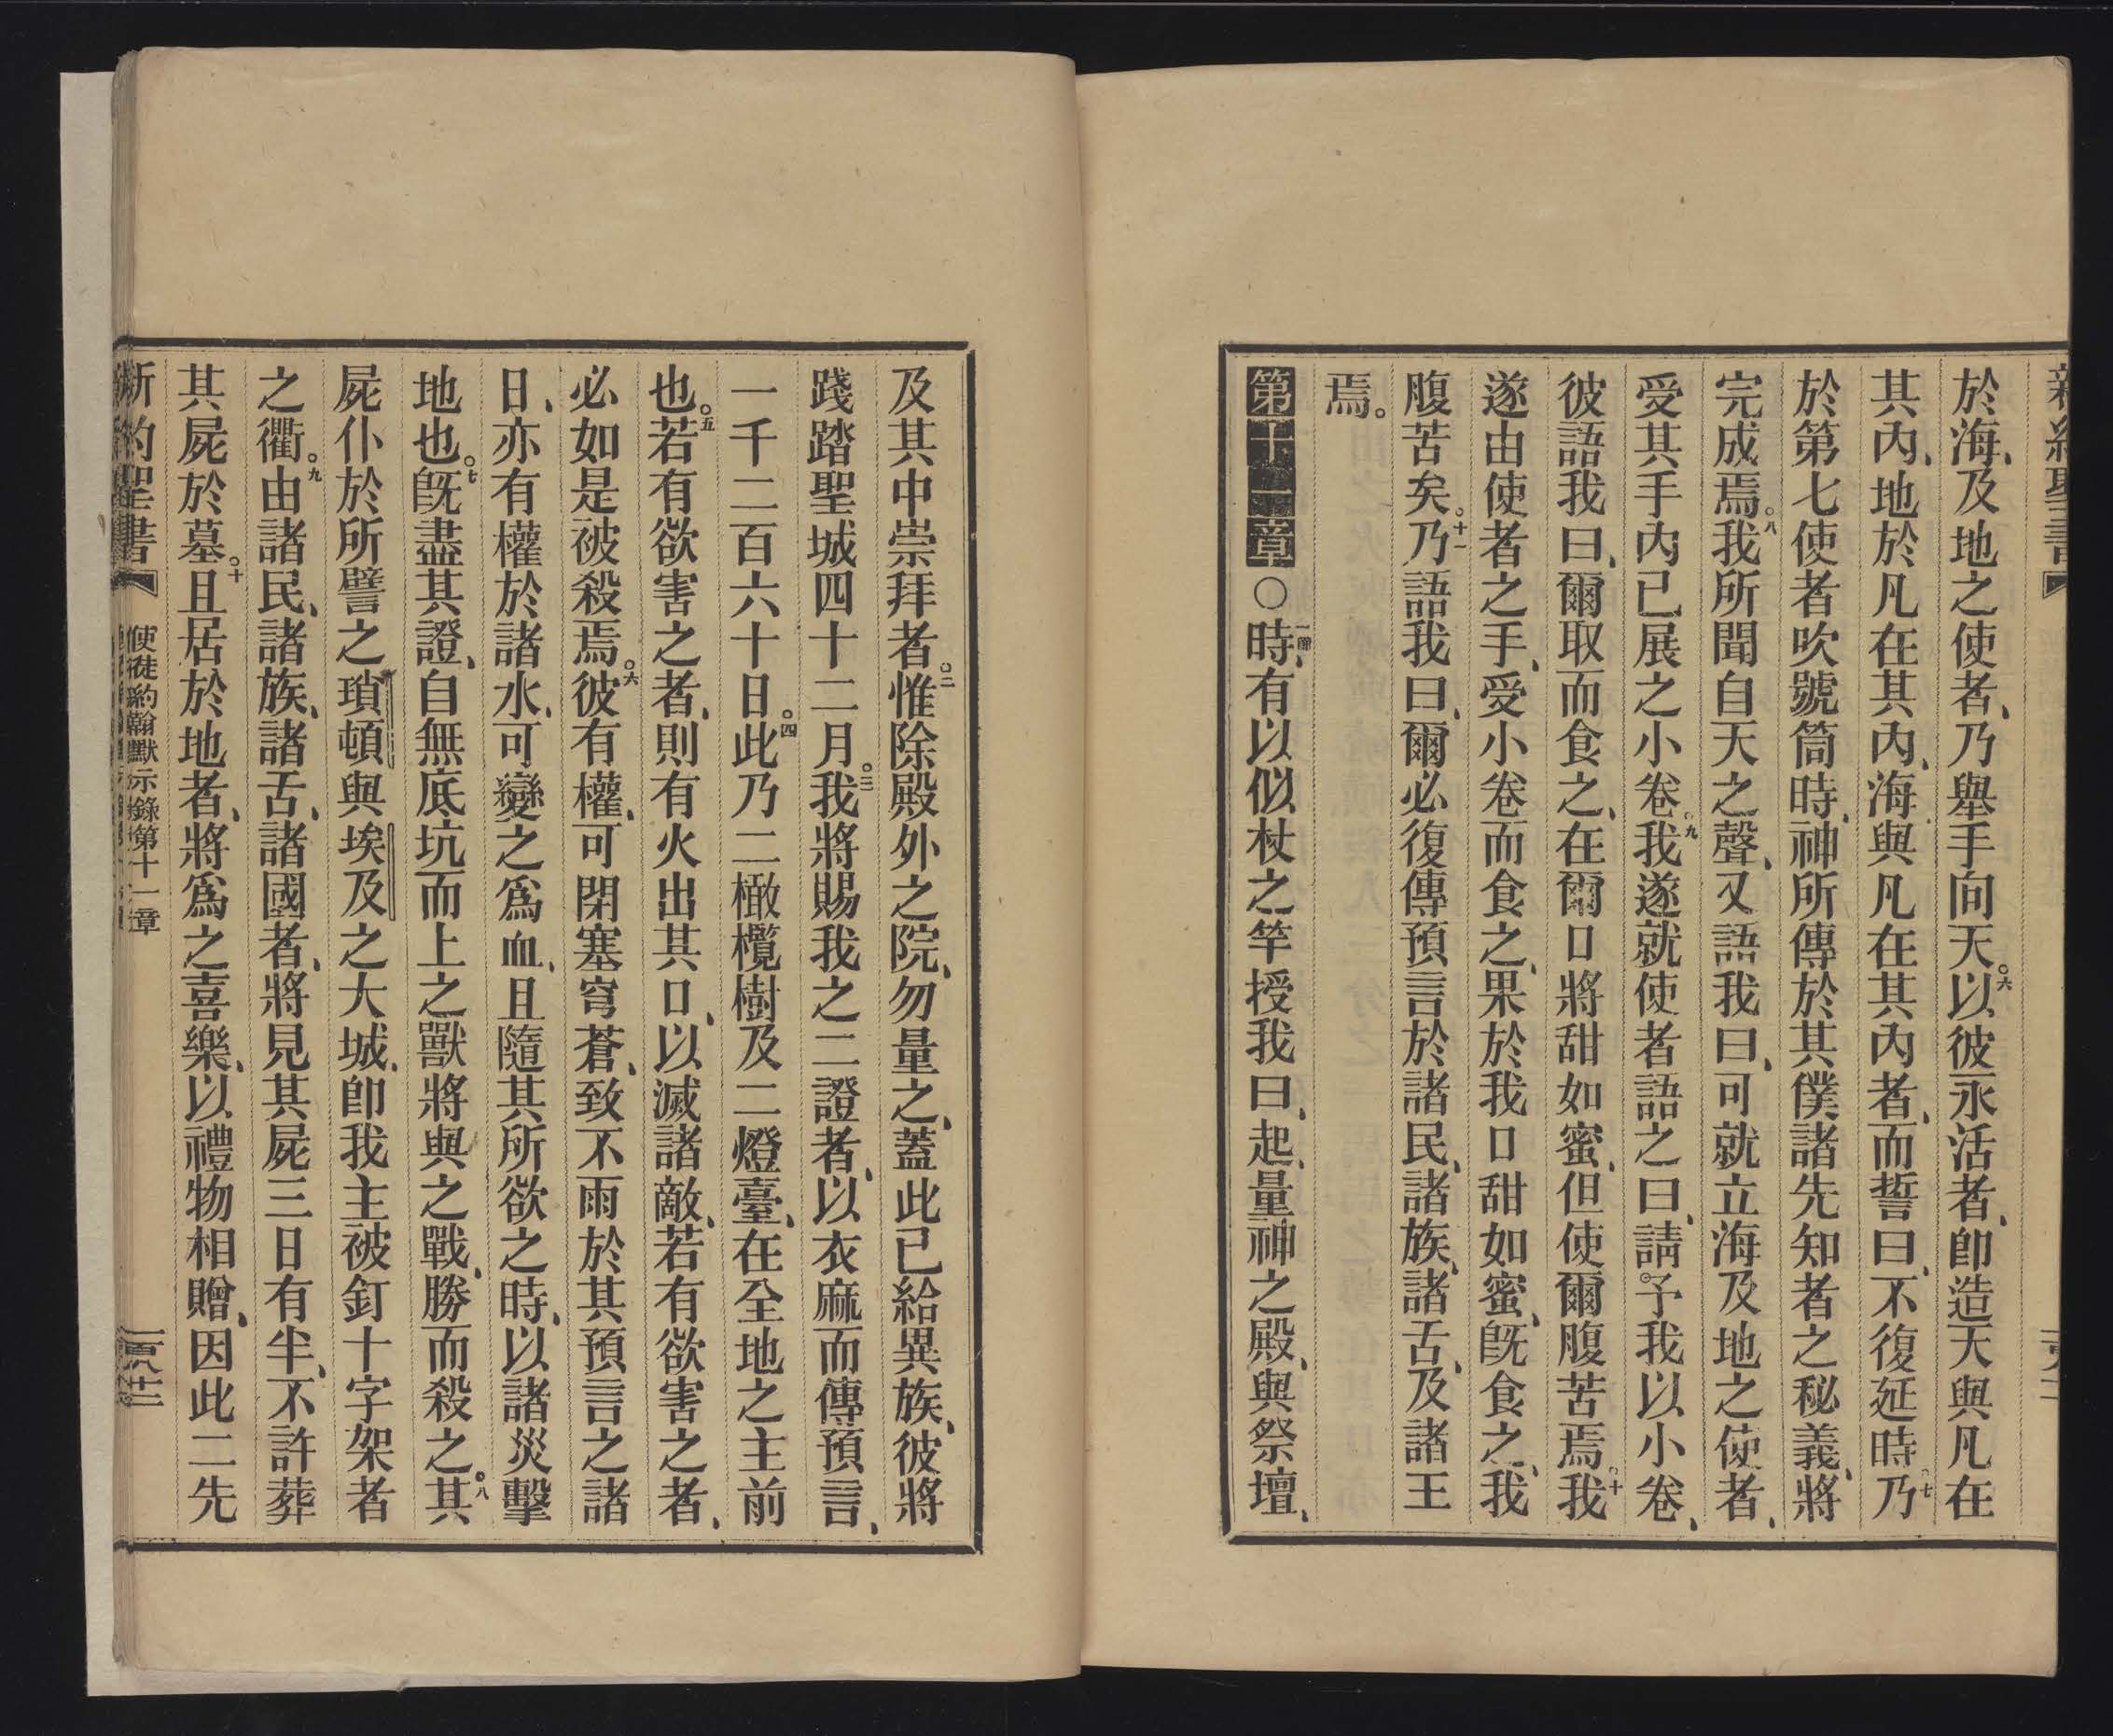 新約聖書
於海、及地之使者、乃舉手向天。六以彼永活者、卽造天與凡在
其內、地於凡在其內、海與凡在其內者、而誓曰、不復延時。七乃
於第七使者吹號筒時、神所傳於其僕諸先知者之秘義、將
完成焉。八我所聞自天之聲、又語我曰、可就立海及地之使者、
受其手內已展之小卷。九我遂就使者語之曰、請予我以小卷、
彼語我曰、爾取而食之、在爾口將甜如蜜、但使爾腹苦焉。十我
遂由使者之手、受小卷而食之、果於我口甜如蜜、旣食之、我
腹苦矣。十一乃語我曰、爾必復傳預言於諸民、諸族、諸舌、及諸王
焉。
第十一章〇一節時、有以似杖之竿授我曰、起、量神之殿、與祭壇、
及其中崇拜者。二惟除殿外之院、勿量之、蓋此已給異族、彼將
踐踏聖城四十二月。三我將賜我之二證者、以衣麻而傳預言、
一千二百六十日。四此乃二橄欖樹及二燈臺、在全地之主前
也。五若有欲害之者、則有火出其口、以滅諸敵、若有欲害之者、
必如是被殺焉。六彼有權、可閉塞穹蒼、致不雨於其預言之諸
日、亦有權於諸水、可變之爲血、且隨其所欲之時、以諸災擊
地也。七旣盡其證、自無底坑而上之獸將與之戰、勝而殺之。八其
屍仆於所譬之瑣頓與埃及之大城、卽我主被釘十字架者
之衢。九由諸民、諸族、諸舌、諸國者、將見其屍三日有半、不許葬
其屍於墓。十且居於地者、將爲之喜樂、以禮物相贈、因此二先
新約聖書 使徒約翰默示錄第十一章